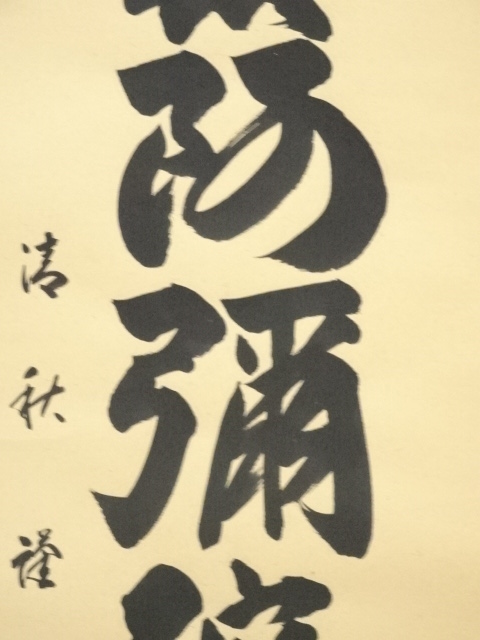 阿彌
清秋謹